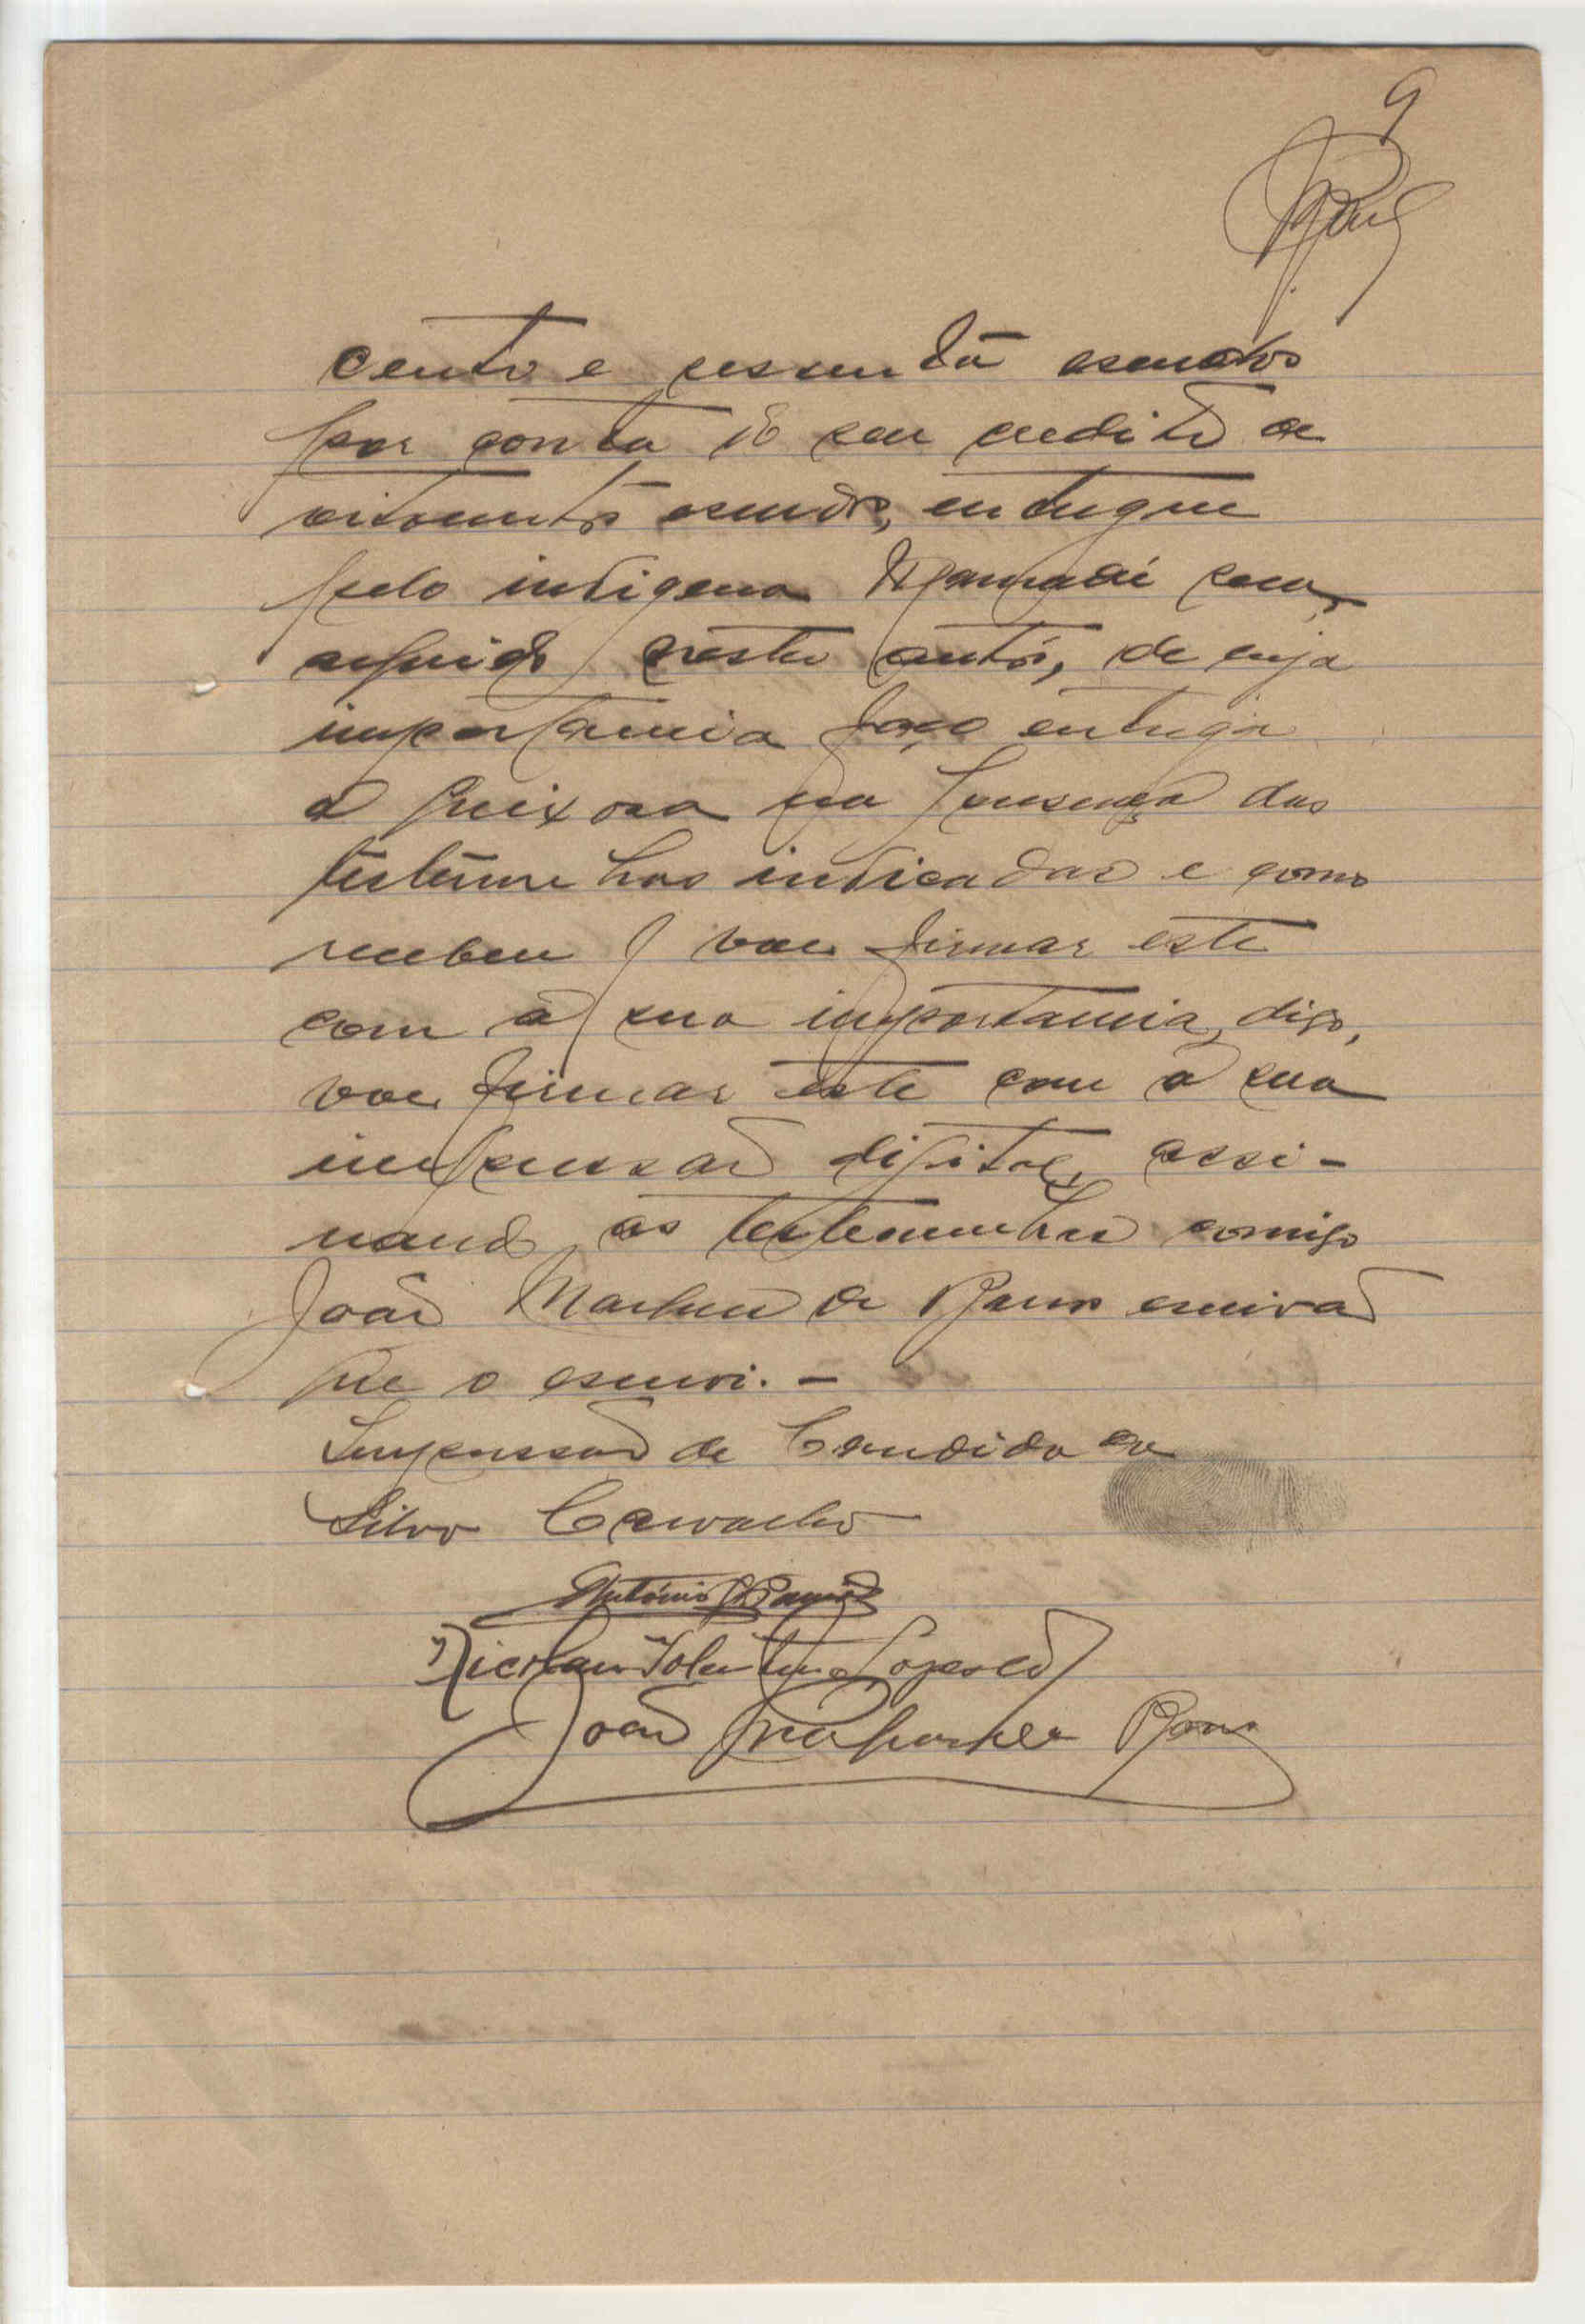 9
cento e sessenta escudos
por conta do seu credito de
oitocentos escudos, entregue
pelo indigena Mamadé
arguido nestes autos, de cuja
importancia faço entrega
á queixosa na presença das
testemunhas indicadas e como
recebeu vae firmar este
com a sua importancia, digo,
vae firmar este com a sua
impressão digital, assi-
nando as testemunhas comigo
João de Barros escrivão
que o escrevi. -
Impressão de Candida da
Silva Carvalho
António
Nicolau Tolentino Lopes
João Barros